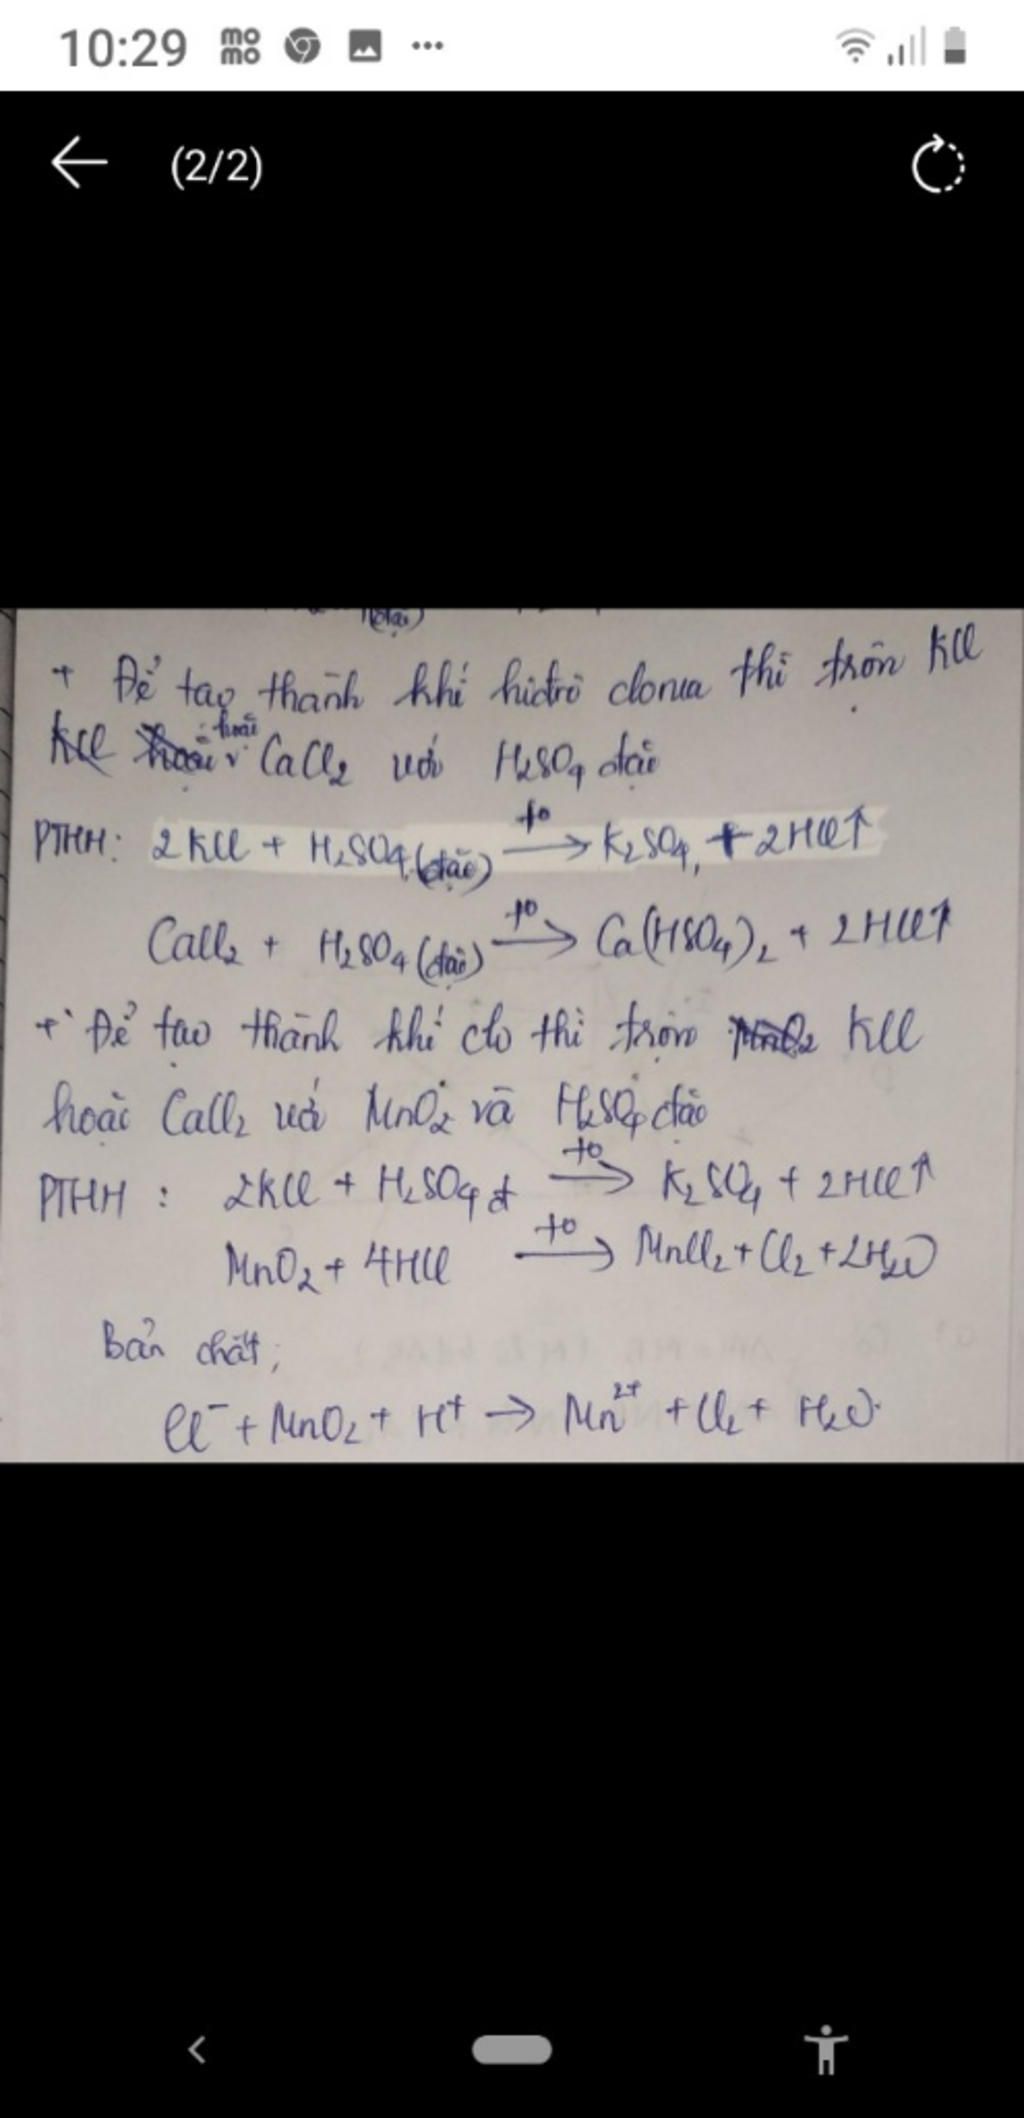 10:29
(2/2)
(đặc)
+ Để tạo thành khí hiđrô clorua thì trộn KCl
KCl hoặc hoặc CaCl₂ với H₂SO₄ đặc
PTHH: 2KCl + H₂SO₄(đặc) t° → K₂SO₄ + 2HCl↑
CaCl₂ + H₂SO₄(đặc) t° → Ca(HSO₄)₂ + 2HCl↑
+ Để tạo thành khí clo thì trộn MnO₂ KCl
hoặc CaCl₂ với MnO₂ và H₂SO₄ đặc
PTHH : 2KCl + H₂SO₄ đ t° → K₂SO₄ + 2HCl↑
MnO₂ + 4HCl t° → MnCl₂ + Cl₂ + 2H₂O
Bản chất;
Cl⁻ + MnO₂ + H⁺ → Mn²⁺ + Cl₂ + H₂O